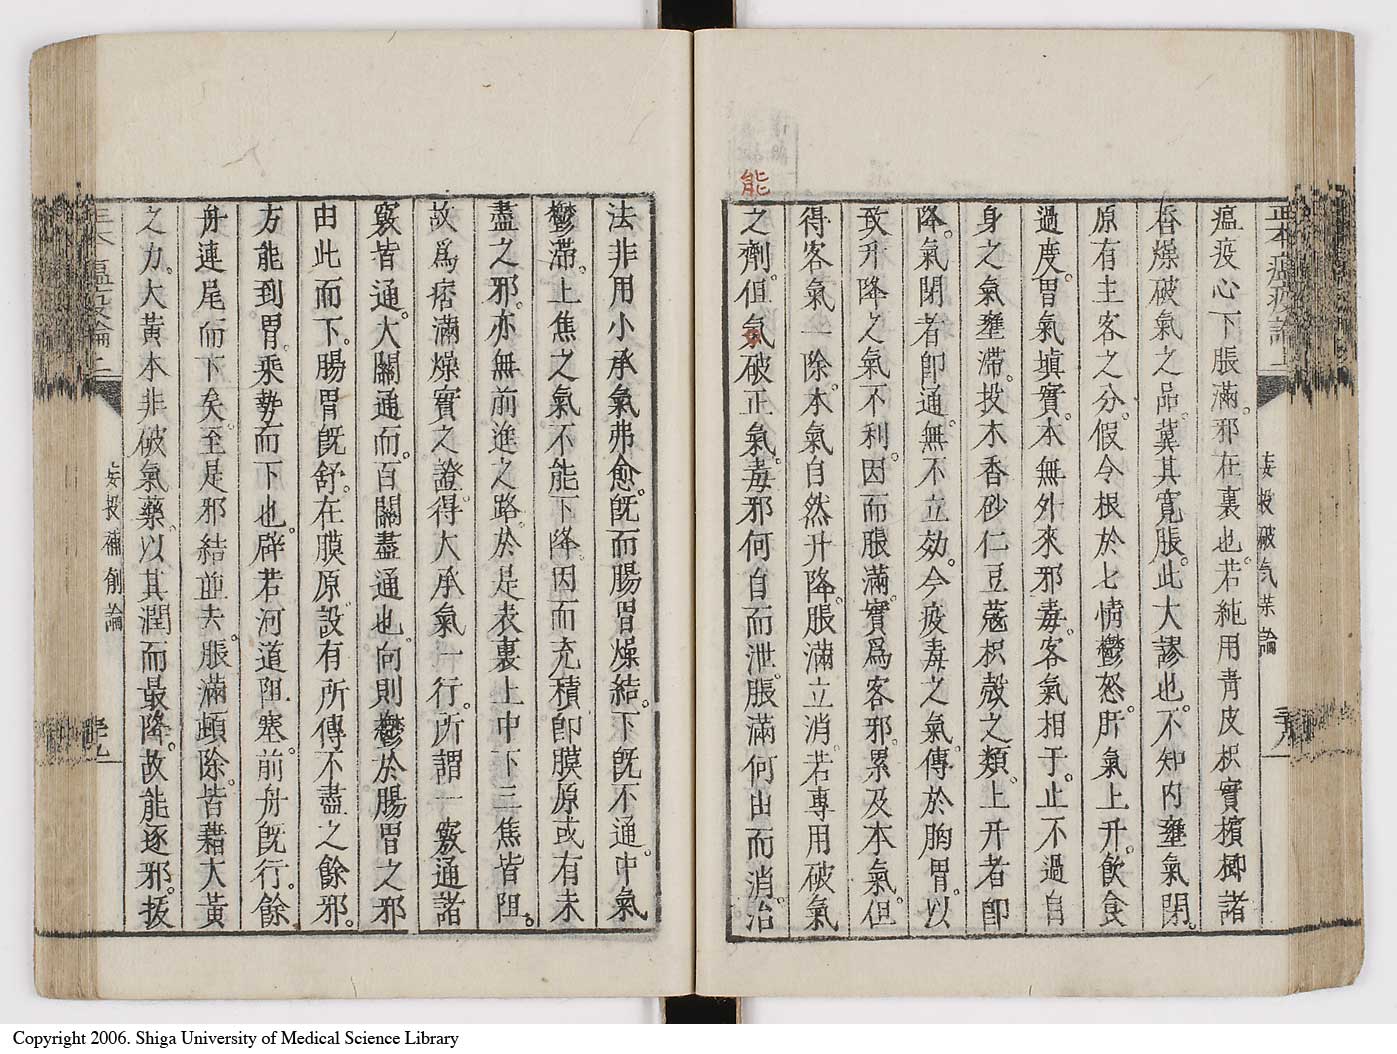 正本瘟疫論上
妄投破気薬論
三十八
瘟疫心下脹滿。邪在裏也。若純用青皮枳實檳榔諸
香燥破氣之品。冀其寛脹。此大謬也。不知內壅氣閉。
原有主客之分。假令根於七情鬱怒。肝氣上升。飲食
過度。胃氣填實。本無外來邪毒。客氣相干。止不過自
身之氣壅滯。投木香砂仁豆蔻枳殼之類。上升者卽
降。氣閉者卽通。無不立効。今疫毒之氣。傳於胸胃。以
致升降之氣不利。因而脹滿。實爲客邪累及本氣。但
得客氣一除。本氣自然升降。脹滿立消。若專用破氣
之劑。但氣破正氣。毒邪何自而泄。脹滿何由而消。治
能
法非用小承氣弗愈。旣而腸胃燥結。下旣不通。中氣
鬱滯。上焦之氣不能下降。因而充積。卽膜原或有未
盡之邪。亦無前進之路。於是表裏上中下三焦皆阻。
故爲痞滿燥實之證。得大承氣一行。所謂一竅通諸
竅皆通。大關通而。百關盡通也。向則鬱於腸胃之邪
由此而下。腸胃旣舒。在膜原設有所傳不盡之餘邪。
方能到胃。乘勢而下也。辟若河道阻塞。前舟旣行。餘
舟連尾而下矣。至是邪結並去。脹滿頓除。皆藉大黃
之力。大黃本非破氣藥。以其潤而最降。故能逐邪。拔
妄投補劑論
Copyright 2006. Shiga University of Medical Science Library